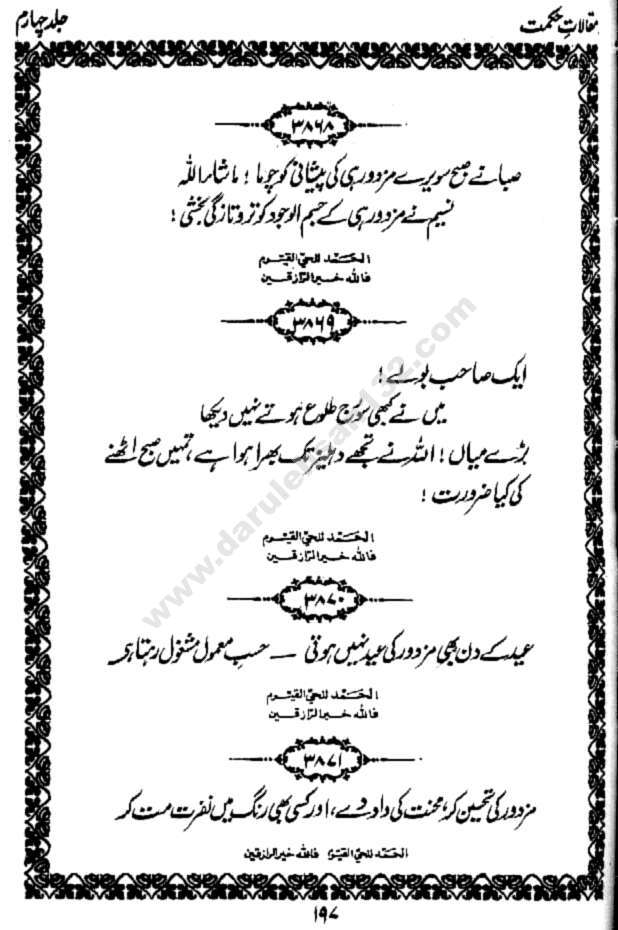 مقالاتِ حکمت
جلد چہارم
۳۸۶۸
صبا نے صبح سویرے مزدور ہی کی پیشانی کو چوما ؛ ماشاء اللہ
نسیم نے مزدور ہی کے جسم الوجود کو تر و تازگی بخشی ؛
الحمد للحی القیوم
فاللہ خیر الرازقین
۳۸۶۹
ایک صاحب بولے ؛
میں نے کبھی سورج طلوع ہوتے نہیں دیکھا
بڑے میاں ؛ اللہ نے تجھے دہلیز تک بھرا ہوا ہے ، تمہیں صبح اٹھنے
کی کیا ضرورت ؛
الحمد للحی القیوم
فاللہ خیر الرازقین
۳۸۷۰
عید کے دن بھی مزدور کی عید نہیں ہوتی — حسبِ معمول مشغول رہتا ہے
الحمد للحی القیوم
فاللہ خیر الرازقین
۳۸۷۱
مزدور کی تحسین کر ، محنت کی داد دے ، اور کسی بھی رنگ میں نفرت مت کر
الحمد للحی القیوم فاللہ خیر الرازقین
۱۹۷
www.darulehsan132.com